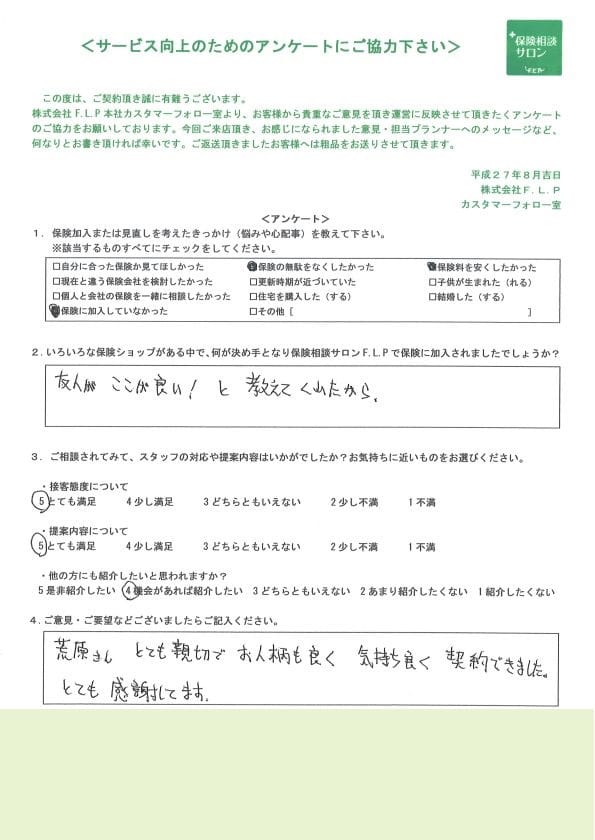 ＜サービス向上のためのアンケートにご協力下さい＞
保険相談
サロン
F.L.P
この度は、ご契約頂き誠に有難うございます。
株式会社F.L.P本社カスタマーフォロー室より、お客様から貴重なご意見を頂き運営に反映させて頂きたくアンケート
のご協力をお願いしております。今回ご来店頂き、お感じになられました意見・担当プランナーへのメッセージなど、
何なりとお書き頂ければ幸いです。ご返送頂きましたお客様へは粗品をお送りさせて頂きます。
平成２７年８月吉日
株式会社Ｆ.Ｌ.Ｐ
カスタマーフォロー室
＜アンケート＞
１．保険加入または見直しを考えたきっかけ（悩みや心配事）を教えて下さい。
※該当するものすべてにチェックをしてください。
□自分に合った保険か見てほしかった ■保険の無駄をなくしたかった ■保険料を安くしたかった
□現在と違う保険会社を検討したかった □更新時期が近づいていた □子供が生まれた（れる）
□個人と会社の保険を一緒に相談したかった □住宅を購入した（する） □結婚した（する）
■保険に加入していなかった □その他［ ］
２．いろいろな保険ショップがある中で、何が決め手となり保険相談サロンF.L.Pで保険に加入されましたでしょうか？
友人が ここが良い！ と 教えてくれたから。
３．ご相談されてみて、スタッフの対応や提案内容はいかがでしたか？お気持ちに近いものをお選びください。
・接客態度について
５とても満足 ４少し満足 ３どちらともいえない ２少し不満 １不満
・提案内容について
５とても満足 ４少し満足 ３どちらともいえない ２少し不満 １不満
・他の方にも紹介したいと思われますか？
５是非紹介したい ４機会があれば紹介したい ３どちらともいえない ２あまり紹介したくない １紹介したくない
４．ご意見・ご要望などございましたらご記入ください。
荒原さん とても親切で お人柄も良く 気持ち良く 契約できました。
とても 感謝してます。